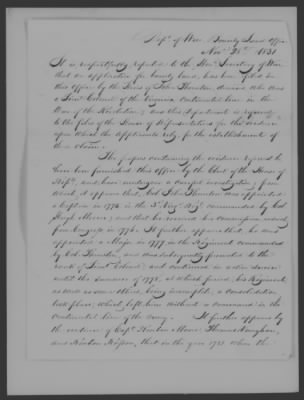 Dep't of War, Bounty Land Office
Nov. 21st 1831
It is respectfully reported to the Hon. Secretary of War
that an application for bounty land, has been filed in
this office by the heirs of John Thornton, deceased, who was
a Lieut. Colonel of the Virginia continental line in the
War of the Revolution; and this department is
to the files of the House of Representatives for the evidence
upon which the applicants rely for the establishment of
their claim.
The papers containing the evidence
have been furnished this office by the Clerk of the House of
Rep's, and have undergone a careful investigation; from
which, it appears, that Col. John Thornton was appointed
a Captain in 1776 in the 3d Virg. Reg't commanded by Col.
Hugh Mercer; and that he received his commission
from Congress in 1776. It further appears that, he was
appointed a Major in 1777 in the Regiment commanded
by Col. Thruston, and was subsequently promoted to the
rank of Lieut. Colonel; and continued in active service
until the summer of 1778, at which period, his Regiment
as well as some others, being incomplete, a consolidation
took place; which left him without a command in the
continental line of the army. It further appears by
the evidence of Cap't
and that in the year 1781 when the